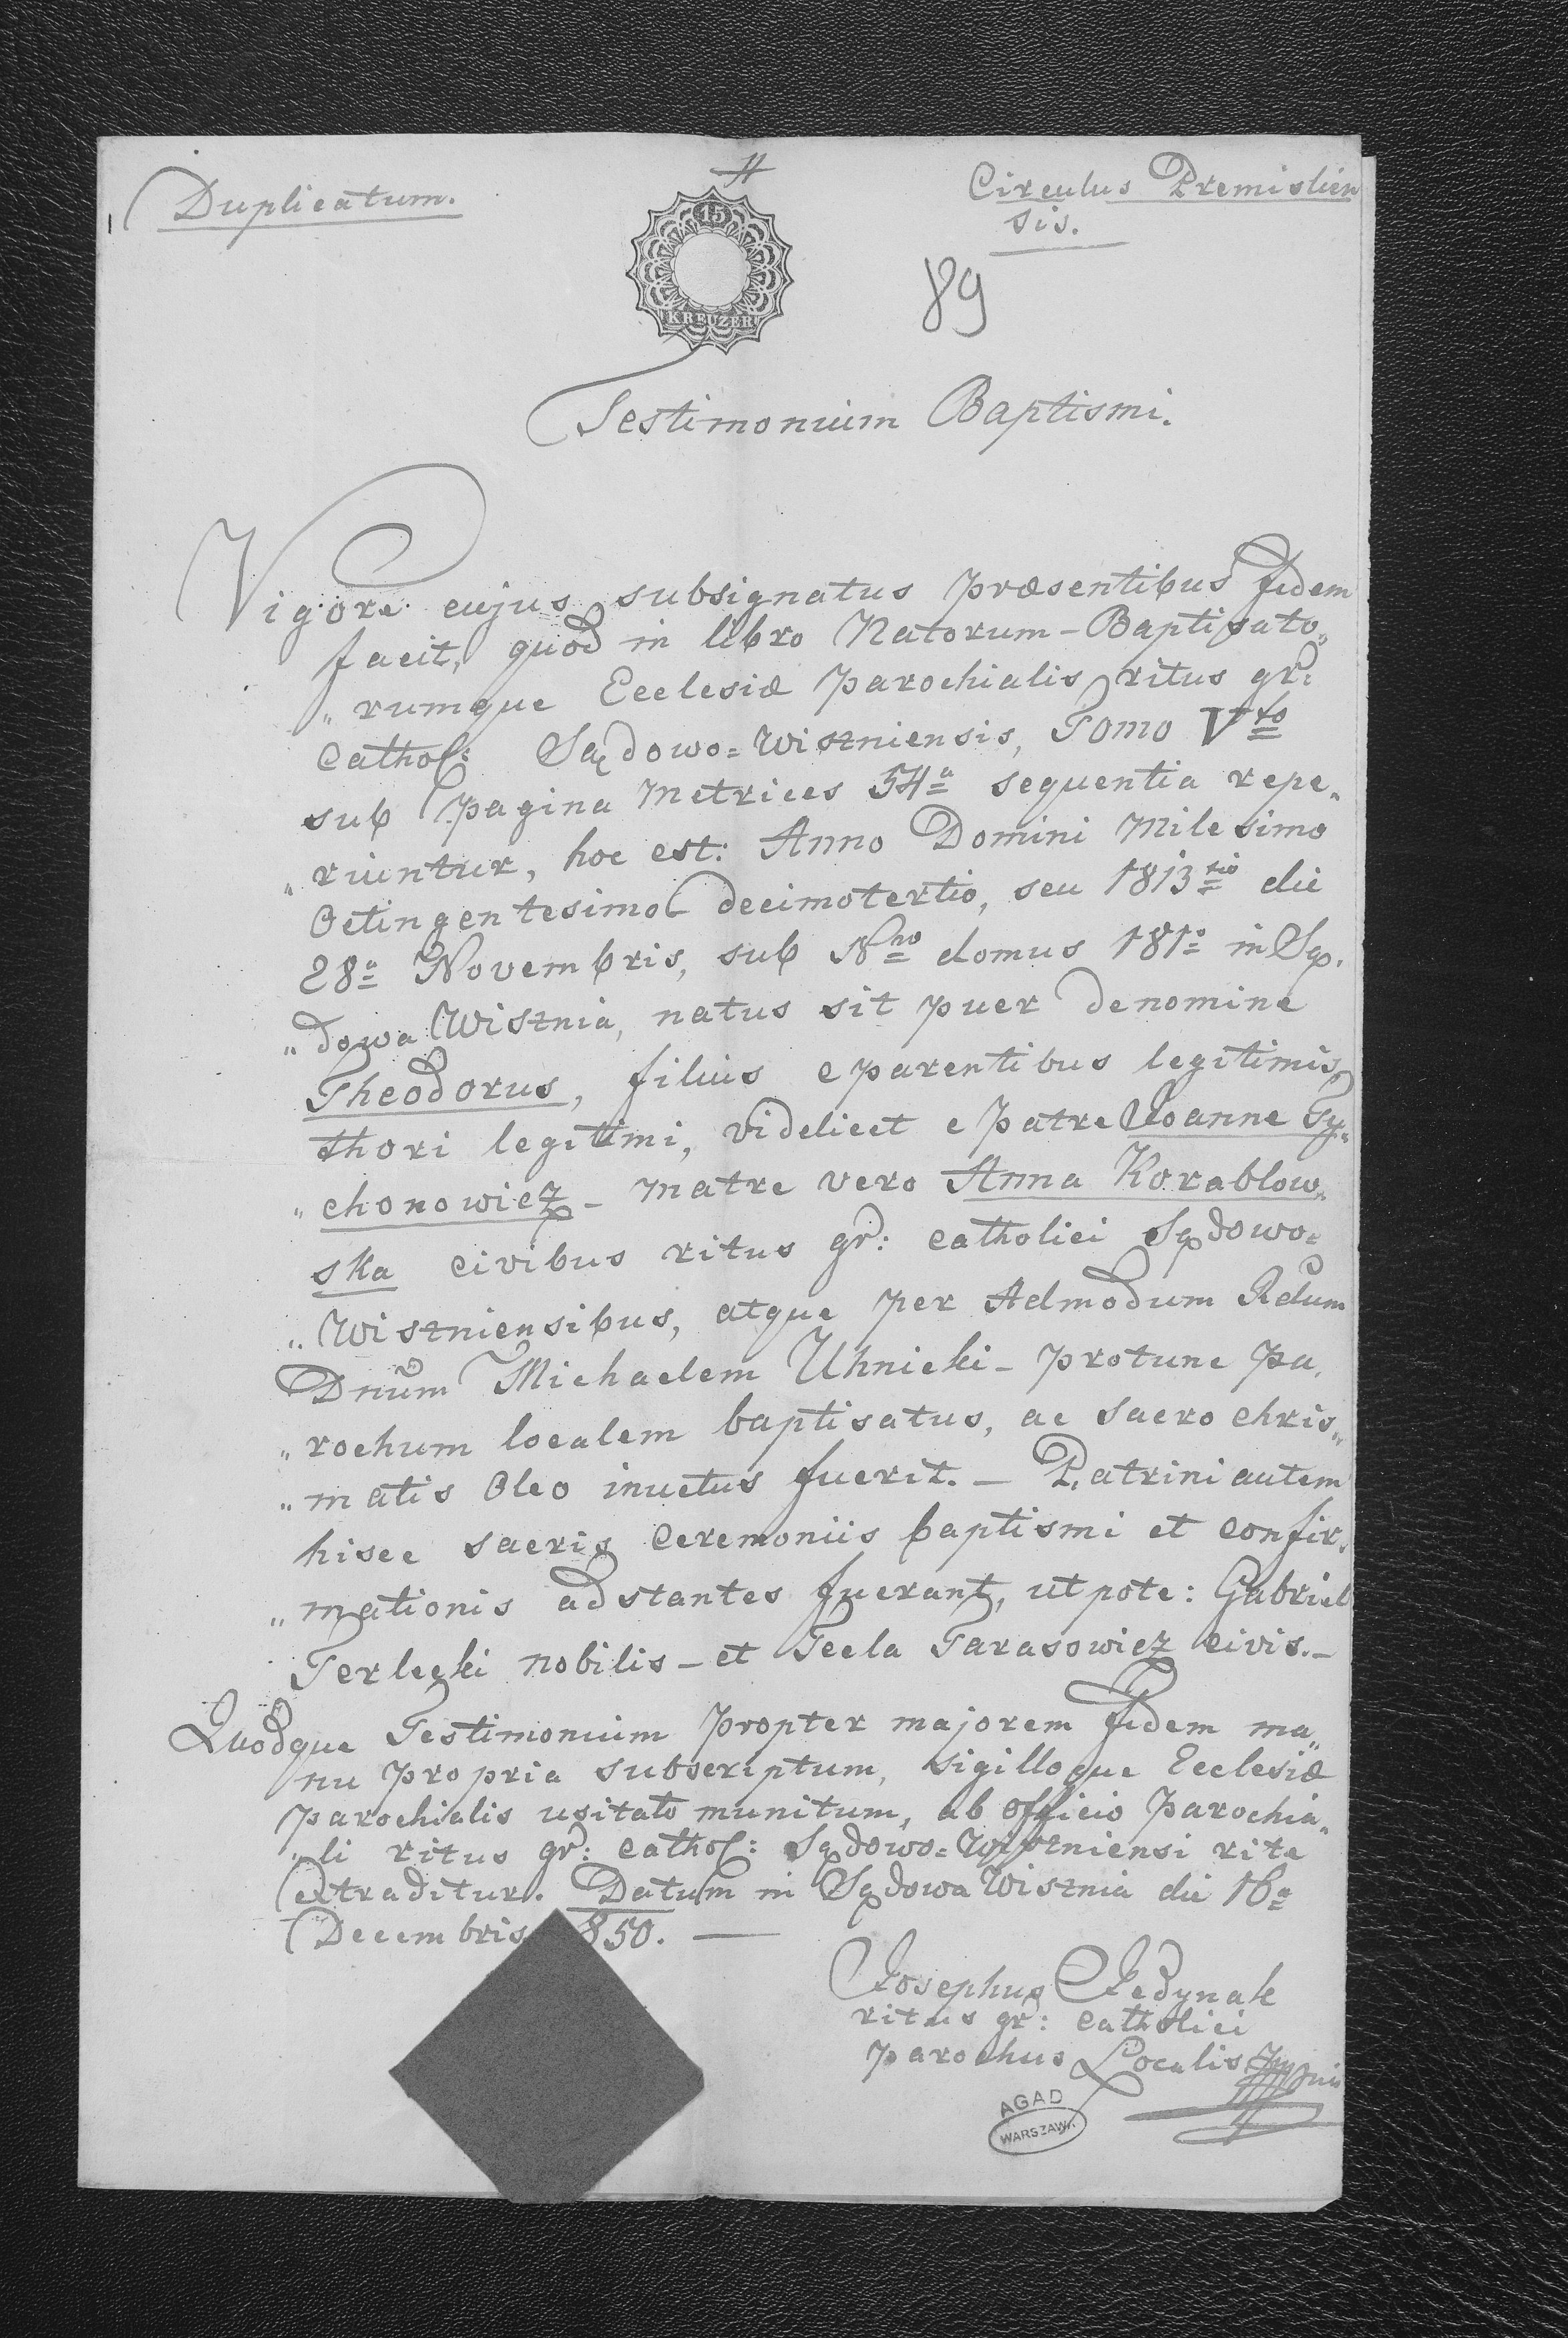 Duplicatum.
Circulus Premislien
sis.
15
KREUZER
89
Testimonium Baptismi.
Vigore cujus subsignatus præsentibus fidem
facit, quod in libro Natorum-Baptisato„
„rumque Ecclesiæ parochialis ritus gr:
Cathol: Sądowo=Wiszniensis, Tomo Vto
sub pagina Metrices 54a sequentia repe„
„riuntur, hoc est: Anno Domini Milesimo
Octingentesimo decimotertio, seu 1813tio die
28a Novembris, sub Nro domus 181o in Są„
„dowa Wisznia, natus sit puer denomine
Theodorus, filius e parentibus legitimis
thori legitimi, videlicet e patre Ioanne Ty„
„chonowicz - matre vero Anna Korablow„
ska civibus ritus gr: catholici Sądowo=
„Wiszniensibus, atque per Admodum Rdum
Dnum Michaelem Uhnicki - protunc pa„
„rochum localem baptisatus, ac sacro chris„
„matis Oleo inuctus fuerit. - Patrini autem
hisce sacris Ceremoniis baptismi et confir„
„mationis adstantes fuerant, utpote: Gabriel
Terlecki nobilis - et Tecla Tarasowicz civis. -
Quodque Testimonium propter majorem fidem ma„
nu propria subscriptum, sigilloque Ecclesiæ
parochialis usitato munitum, ab officio parochia„
„li ritus gr: cathol: Sądowo=Wiszniensi rite
extraditur. Datum in Sądowa Wisznia die 16a
Decembris 850. —
Josephus Jedynak
ritus gr: catholici
parochus Localis
AGAD
WARSZAWA